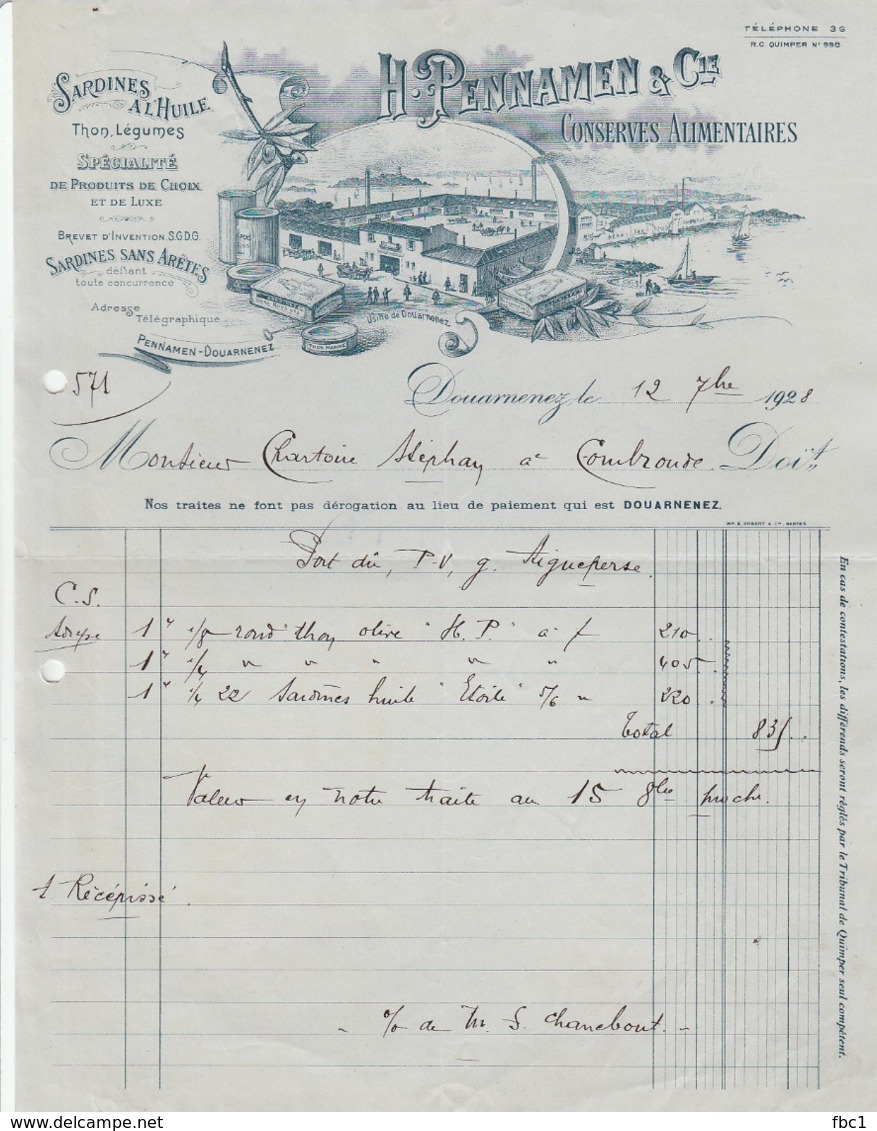 TÉLÉPHONE 36
R.C. QUIMPER Nº 998
H. PENNAMEN & CIE
CONSERVES ALIMENTAIRES
SARDINES
A L'HUILE
Thon, Légumes
SPÉCIALITÉ
DE PRODUITS DE CHOIX
ET DE LUXE
BREVET D'INVENTION S.G.D.G.
SARDINES SANS ARÊTES
défiant
toute concurrence
Adresse
Télégraphique
PENNAMEN-DOUARNENEZ
Usine de Douarnenez
571
Douarnenez, le 12 7bre 1928
Monsieur Chartoire Stéphan à Combronde Doit
Nos traites ne font pas dérogation au lieu de paiement qui est DOUARNENEZ.
IMP. E. GOBERT & Cie, NANTES
Port dû, P.V, g. Aigueperse.
C.S.
1" 1/8 rond thon olive "H.P." à f 210 . .
1" 1/4 " " " " " 405 . .
1" 1/4 22 Sardines huile "Etoile" 5/6 " 220 . .
Total 835 . .
Valeur en notre traite au 15 8bre proche.
1 Récépissé.
o/o de M. S. Chanebout.
En cas de contestations, les différends seront réglés par le Tribunal de Quimper seul compétent.
fbc1